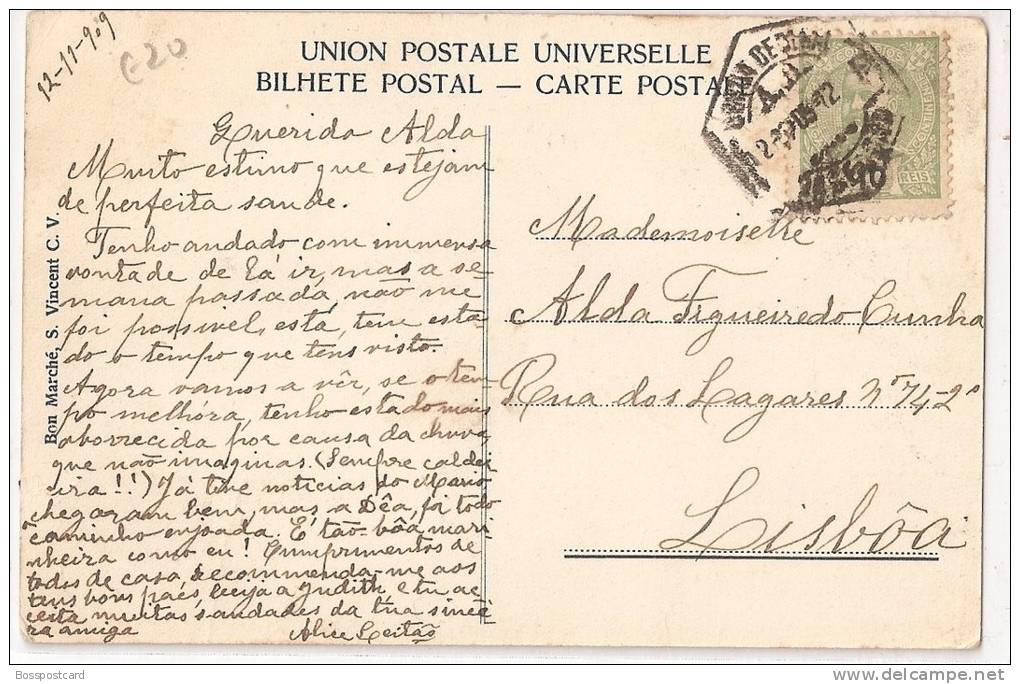 12-11-909
€20
UNION POSTALE UNIVERSELLE
BILHETE POSTAL — CARTE POSTALE
REIS
Querida Alda
Muito estimo que estejam
de perfeita saude.
Tenho andado com immensa
vontade de lá ir, mas a se-
mana passada, não me
foi possivel, está, tem esta
do o tempo que tens visto.
Agora vamos a vêr, se o tem-
po melhóra, tenho estado mais
aborrecida por causa da chuva
que não imaginas. (Sempre caldei
rira!!) Já tive noticias do Mario
chegaram bem, mas a Dêa, foi todo
o caminho enjoada. É tão bôa mari
nheira como eu! Cumprimentos de
todos de casa, recommenda-me aos
teus bons paes, beija a Judith, e tu ac
ceita muitas saudades da tua sincé
ra amiga
Alice Leitão
Bon Marché, S. Vincent C. V.
Mademoiselle
Alda Figueiredo Cunha
Rua dos Lagares Nº 74-2º
Lisbôa
Bosspostcard
www.delcampe.net